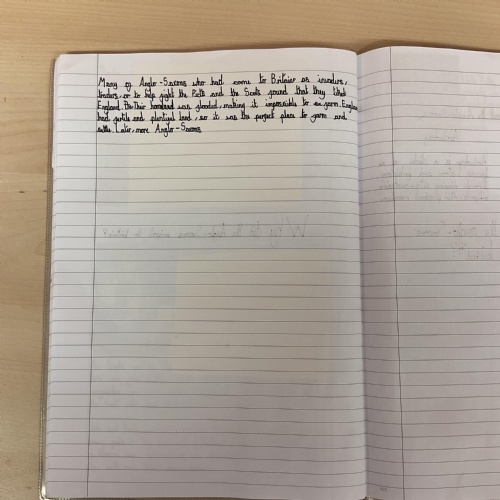 Many of Anglo-Saxons who had come to Britain as invaders,
traders, or to help fight the Picts and the Scots found that they liked
England. Their homeland was flooded, making it impossible to farm. England
had fertile and plentiful land, so it was the perfect place to farm and
settle. Later, more Anglo-Saxons